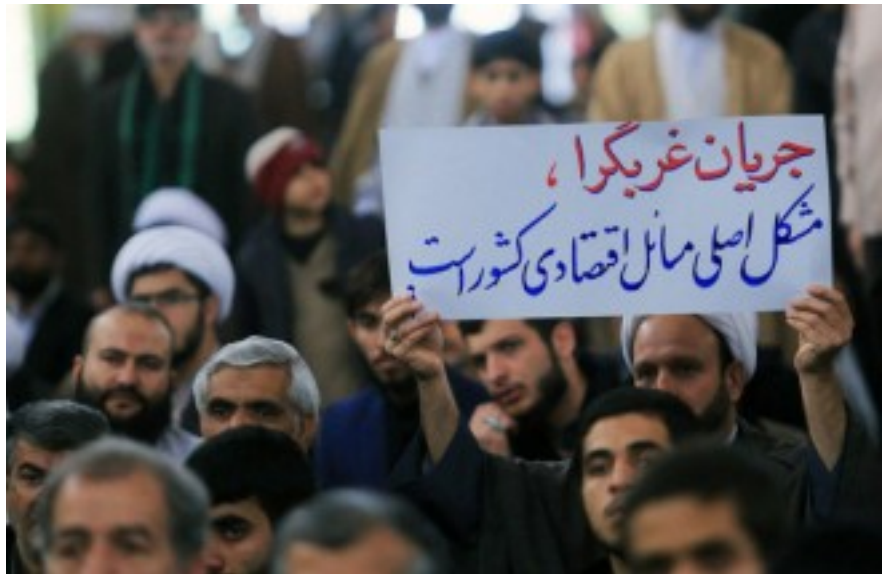 جریان غربگرا ،
مشکل اصلی مسائل اقتصادی کشور است